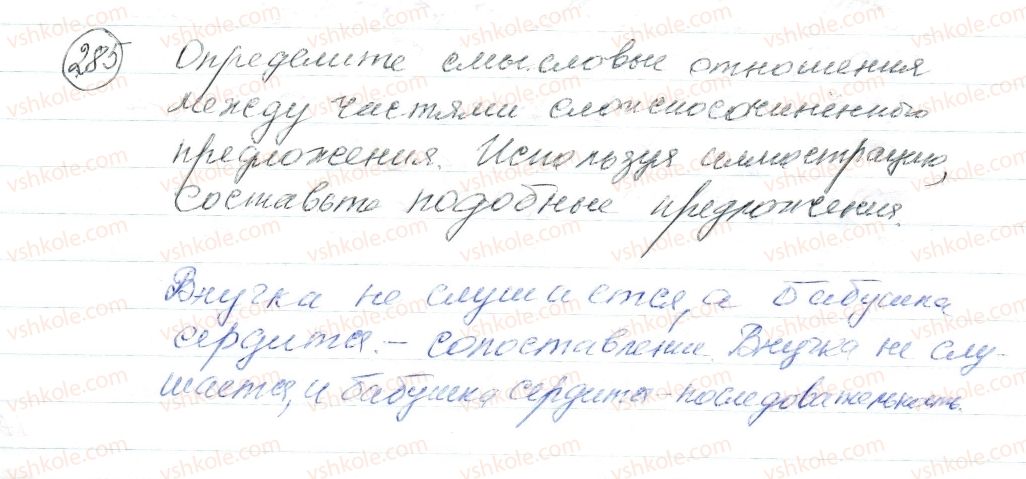 285 Определите смысловые отношения
между частями сложносочинённого
предложения. Используя иллюстрацию,
составьте подобные предложения.
Внучка не слушается, а бабушка
сердится. – сопоставление. Внучка не слу-
шается, и бабушка сердится – последовательность.